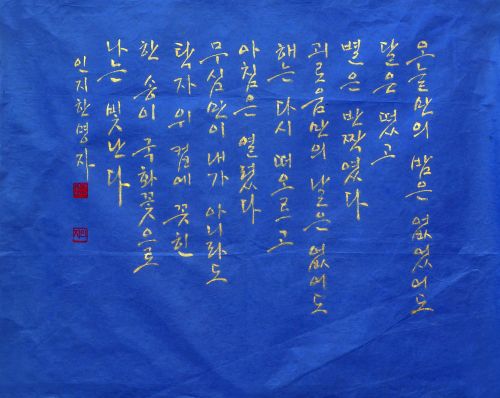 오늘만의 밤은 없었어도
달은 떴고
별은 반짝였다
괴로움만의 날은 없어도
해는 다시 떠오르고
아침은 열렸다
무심만이 내가 아니라도
탁자 위 컵에 꽂힌
한 송이 국화꽃으로
나는 빛난다
인지한명자